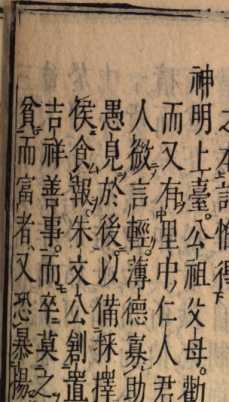 神明上臺。公祖父母。勸
而又有里中仁人君
人微言輕。薄德寡助
愚見於後。以備採擇
侯食報。朱文公創置
吉祥善事。而卒莫之
貧而富者、又恐暴揚